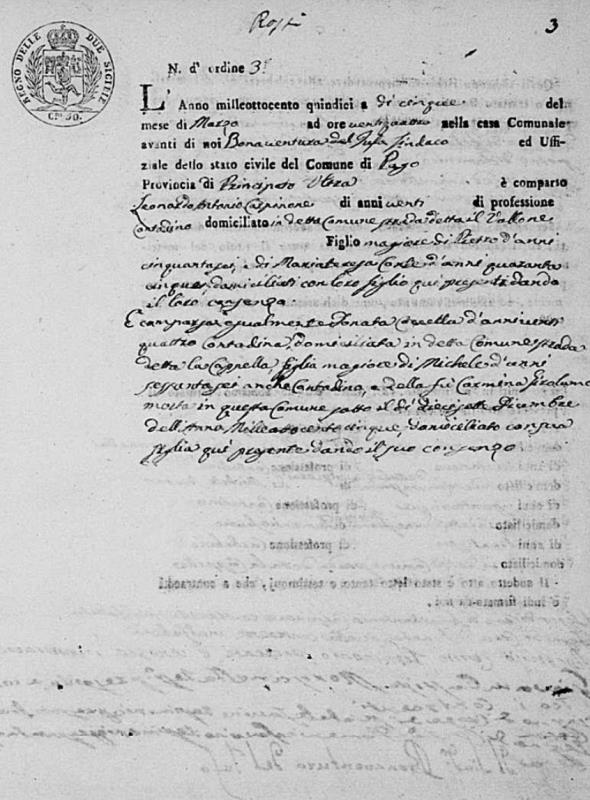 3
REGNO DELLE DUE SICILIE
N. d' ordine 3
L' Anno milleottocento quindici a di cinque del
mese di Marzo ad ore ventiquattro nella casa Comunale
avanti di noi Bonaventura del Sindaco ed Uffi-
ziale dello stato civile del Comune di Pago
Provincia di Principato Ultra è comparso
Leonardo Antonio di anni venti di professione
Contadino domiciliato in detta Comune strada detta il Vallone
Figlio magiore di Pietro d'anni
cinquantasei, e di Maria Teresa d'anni quaranta
cinque, domiciliati con loro figlio qui presenti dando
il loro consenzo.
E comparsa egualmente Donata d'anni venti
quattro Contadina, domiciliata in detta Comune strada
detta la Cappella, figlia magiore di Michele d'anni
sessantasei anche Contadino, e della fu Carmina Girolamo
morta in questa Comune sotto il dì diecisette Dicembre
dell'Anno Milleottocento cinque, domiciliato con sua
figlia qui presente dando il suo consenzo